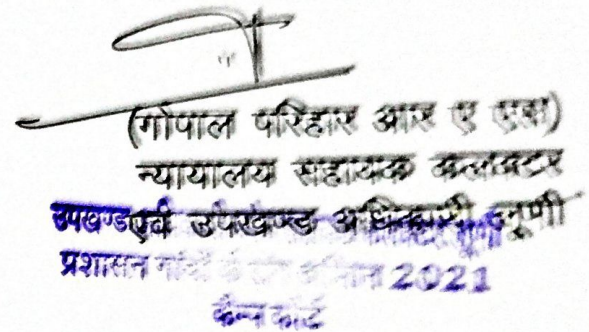 (गोपाल परिहार आर ए एस)
न्यायालय सहायक कलक्टर
उपखण्ड एवं उपखण्ड अधिकारी लूणी
प्रशासन गांवों के संग अभियान 2021
कैम्प कोर्ट